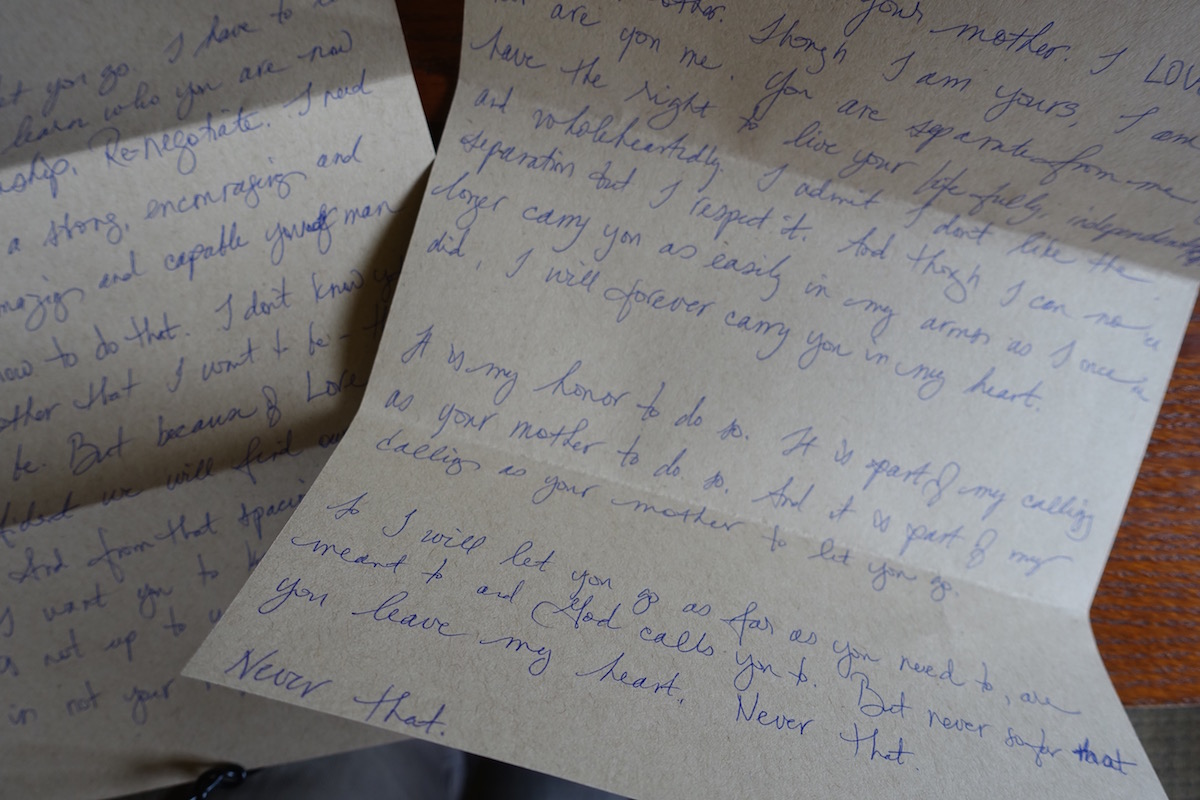 let you go. I have to
learn who you are now
Re-negotiate. I need
a strong, encouraging and
and capable man
how to do that. I don't know
that I want to be -
be. But because of Love
we will find
And from that
I want you to
is not up to
in not your
your mother. I LOVE
are you me. Though I am yours, I am
You are separate from me
have the right to live your life fully, independently
and wholeheartedly. I admit I don't like the
separation but I respect it. And though I can no
longer carry you as easily in my arms as I once
did, I will forever carry you in my heart.
It is my honor to do so. It is part of my calling
as your mother to do so. And it is part of my
calling as your mother to let you go.
So I will let you go as far as you need to, are
meant to and God calls you to. But never so far that
you leave my heart. Never that.
Never that.